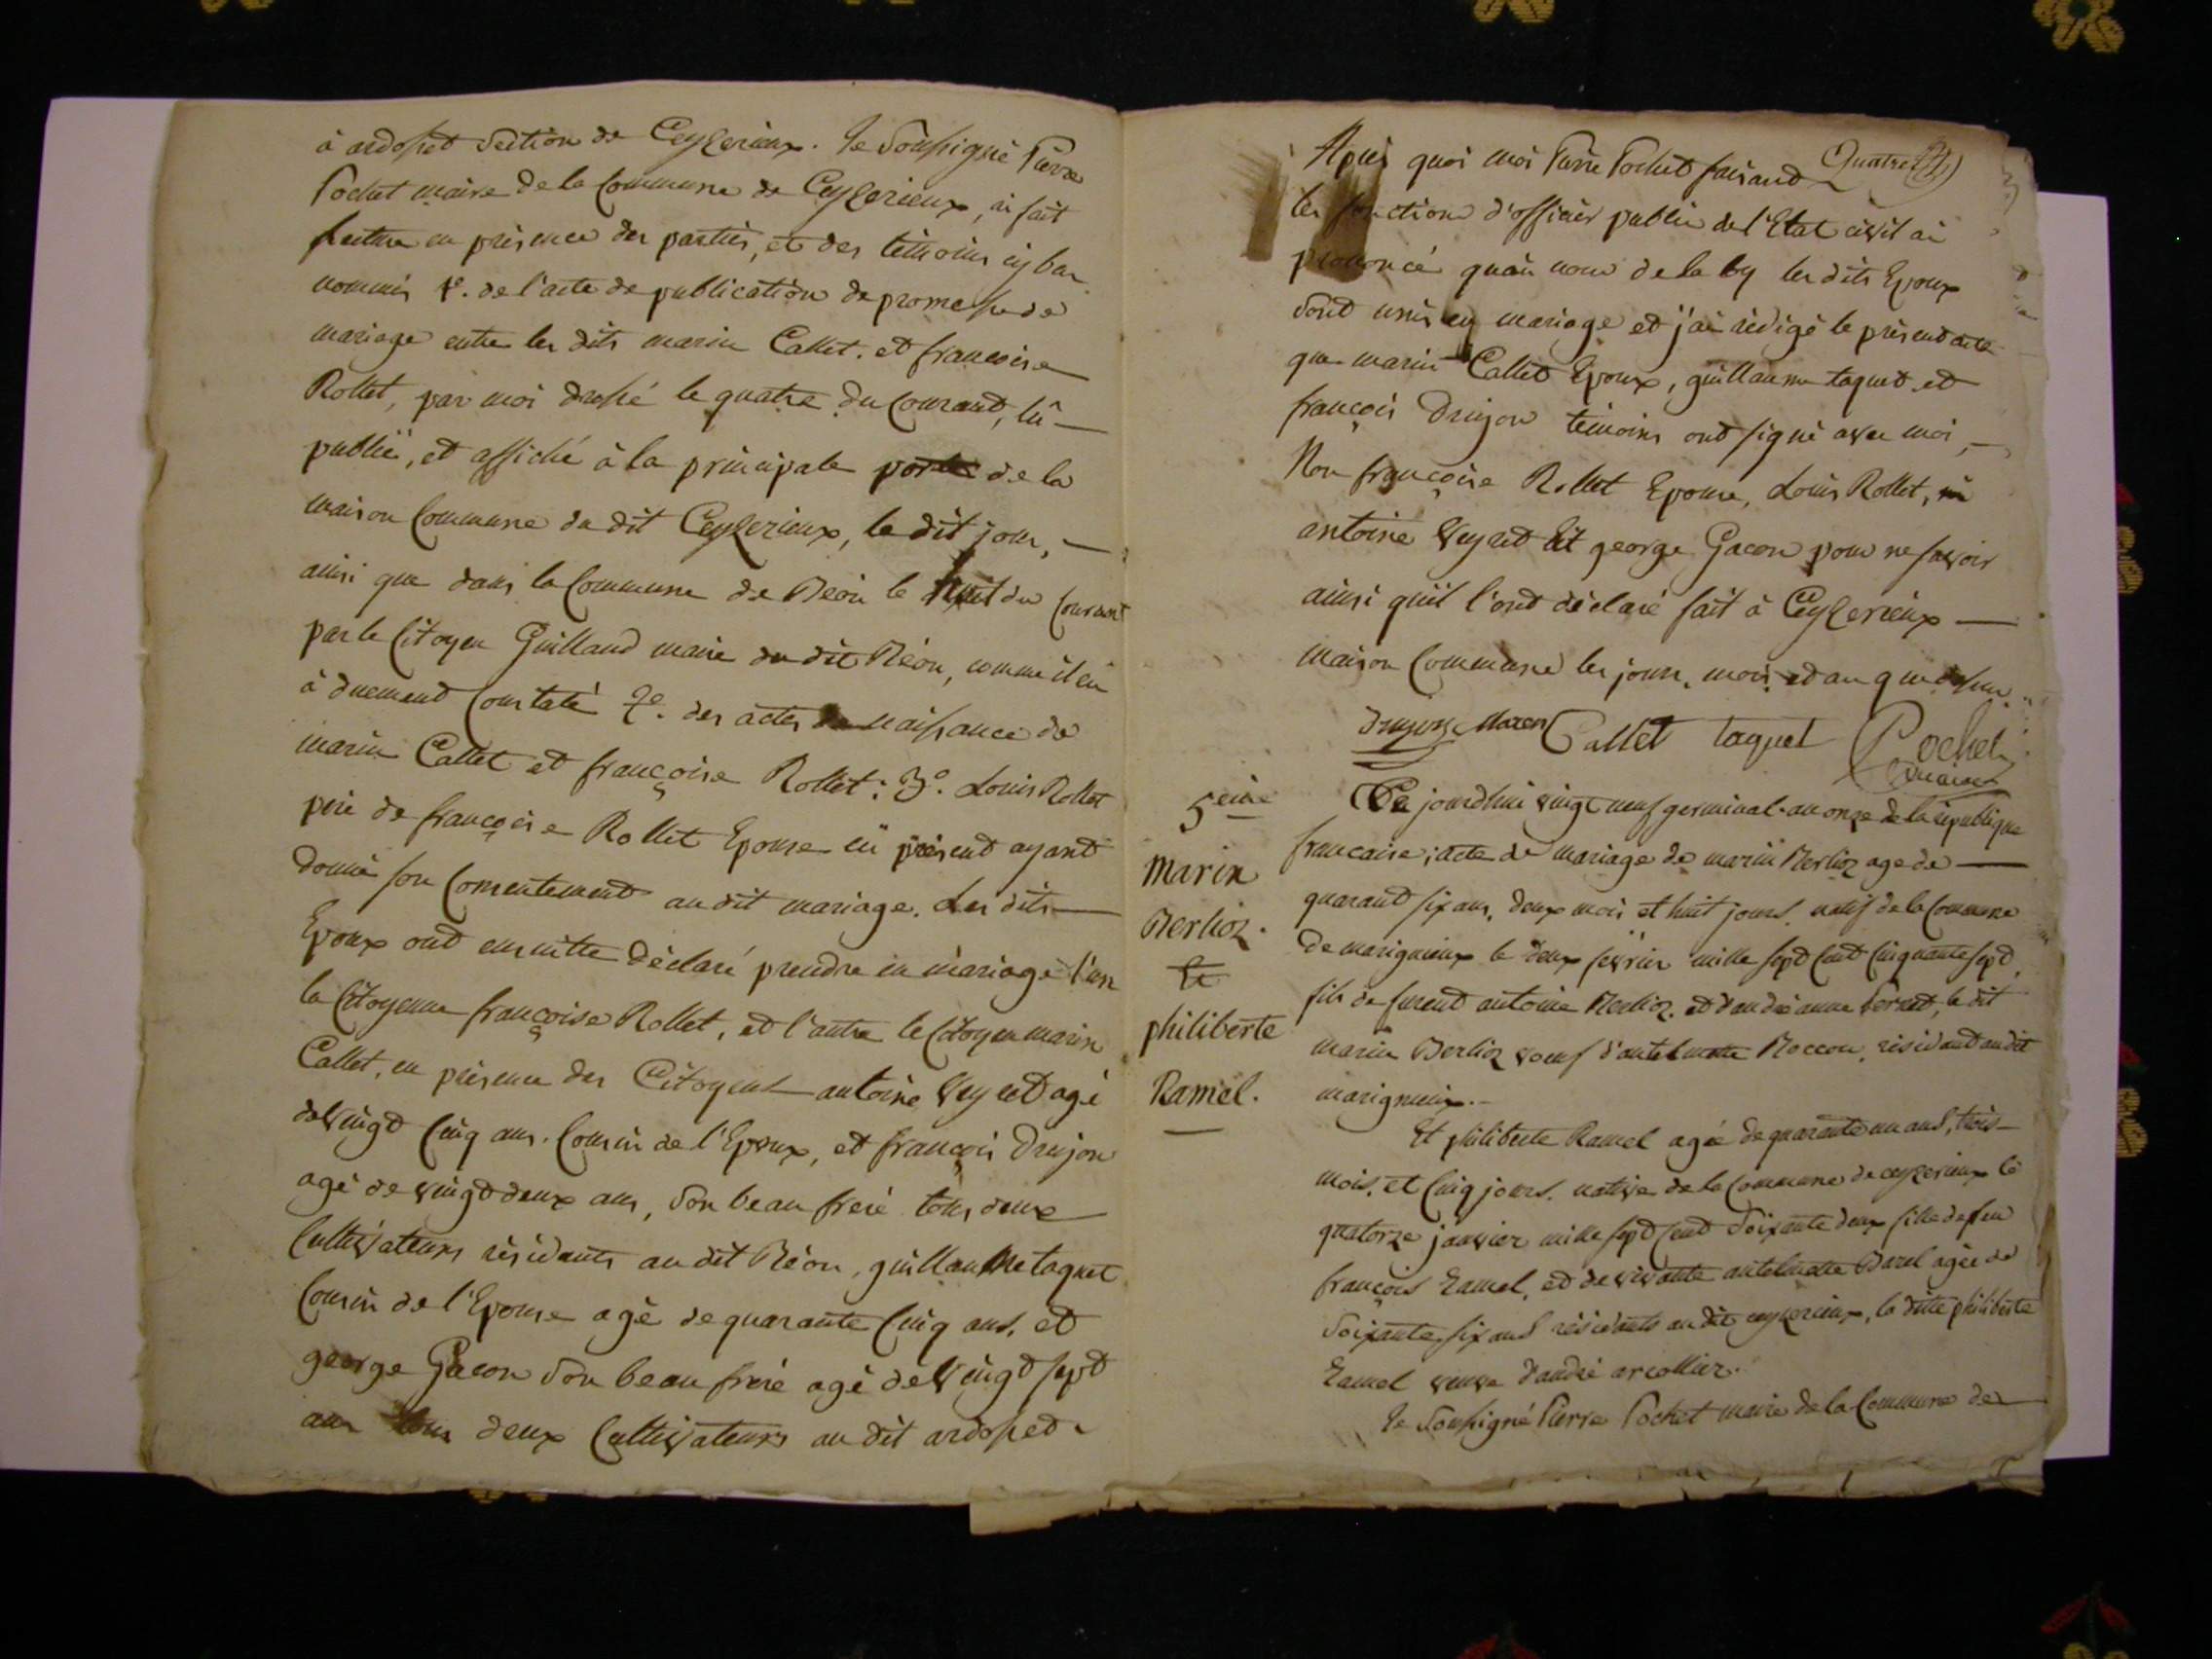 à ardosset Section de Ceyzerieux. Je Soussigné Pierre
Pochet maire de la Commune de Ceyzerieux, ai fait
lecture en présence des parties, et des témoins cy bas
nommés 1º. de l'acte de publication de promesse de
mariage entre les dits marin Callet. et francoise
Rollet, par moi dressé le quatre du Courant, lû
publié, et affiché à la principale porte de la
maison Commune du dit Ceyzerieux, le dit jour,
ainsi que dans la Commune de Béon le huit du Courant
par le Citoyen Guilland maire du dit Béon, comme il en
à duement Constaté 2º. des actes de naissance de
marin Callet et françoise Rollet: 3º. Louis Rollet
pere de françoise Rollet Epouse ici présent ayant
donné son Consentement au dit mariage. Les dits
Epoux ont ensuitte déclaré prendre en mariage l'un
la Citoyenne françoise Rollet, et l'autre le Citoyen marin
Callet, en présence des Citoyens antoine Veyret agé
de vingt Cinq ans. Cousin de l'Epoux, et françois Drujon
agé de vingt deux ans, Son beau frere tous deux
Cultivateurs résidants au dit Béon, guillaume taquet
Cousin de l'Epouse agé de quarante Cinq ans, et
george Gacon Son beau frere agé de Vingt sept
ans tous deux Cultivateurs au dit ardosset
Quatre
Après quoi moi Pierre Pochet faisant
les fonction d'officier public de l'Etat civil ai
prononcé qu'au nom de la loy les dits Epoux
Sont unis en mariage et j'ai rédigé le présent acte
que marin Callet Epoux, guillaume taquet et
françois Drujon témoins ont signé avec moi,
Non françoise Rollet Epouse, Louis Rollet, ni
antoine Veyret et george Gacon pour ne savoir
ainsi qu'il l'ont déclaré fait à Ceyzerieux
maison Commune les jours, mois, et an que dessus
Drujon Maren Callet taquet Pochet
maire
5eme
Marin
Berlioz.
et
philiberte
Ramel.
Ce jourdhui vingt neuf germinal an onze de la république
francaise; acte de mariage de marin Berlioz agé de
quarant six ans, deux mois et huit jours. natif de la Commune
de marignieux le deux février mille sept Cent Cinquante sept,
fils de furent antoine Berlioz. et d'andréanne Vernet, le dit
marin Berlioz voeuf d'antelmette Roccon, résidant au dit
marignieux.
Et philiberte Ramel agée de quarante un ans, trois
mois, et Cinq jours. native de la Commune de ceyzerieux le
quatorze janvier mille sept Cent Soixante deux fille de feu
françois Ramel, et de vivante antelmette Barel agée de
Soixante six ans résidants au dit ceyzerieux, la ditte philiberte
Ramel veuve d'andré arcollier.
Je Soussigné Pierre Pochet maire de la Commune de